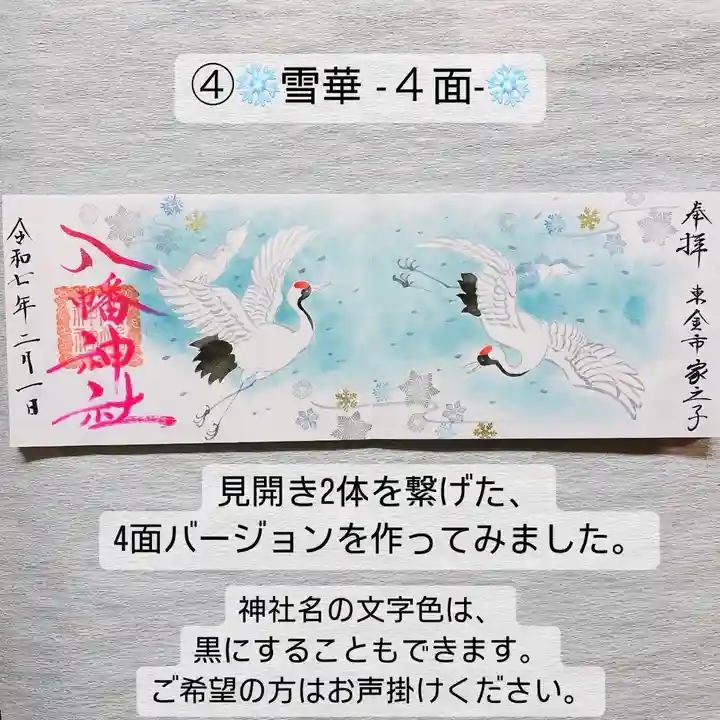 ④❄️雪華 -４面-❄️
奉拝 東金市家之子
八幡神社
令和七年二月一日
見開き2体を繋げた、
4面バージョンを作ってみました。
神社名の文字色は、
黒にすることもできます。
ご希望の方はお声掛けください。